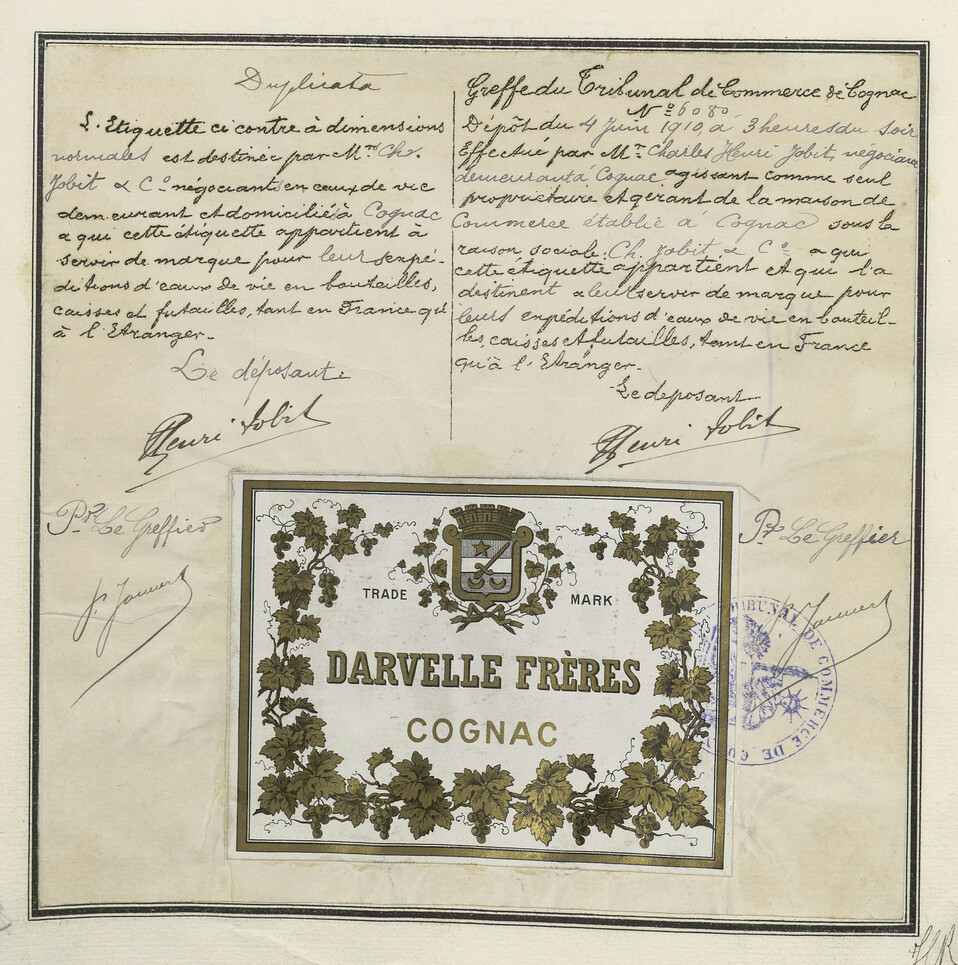 Duplicata
L'Etiquette ci contre à dimensions
normales est destinée par Mrs Ch.
Jobit & Co négociants en eaux de vie
demeurant et domiciliés à Cognac
a qui cette étiquette appartient à
servir de marque pour leurs expé-
ditions d'eaux de vie en bouteilles,
caisses et futailles, tant en France qu'
à l'Etranger.
Le déposant.
Henri Jobit
Pr. Le Greffier
Greffe du Tribunal de Commerce de Cognac
No 6080
Dépôt du 4 Juin 1910, à 3 heures du soir
Effectué par Mr Charles Henri Jobit, négociant
demeurant à Cognac agissant comme seul
propriétaire et gérant de la maison de
Commerce établie à Cognac sous la
raison sociale: Ch. Jobit & Co a qui
cette étiquette appartient et qui l'a
destinent a leur servir de marque pour
leurs expéditions d'eaux de vie en bouteil-
les, caisses et futailles, tant en France
qu'à l'Etranger.
Le deposant
Henri Jobit
Pr. Le Greffier
TRADE MARK
DARVELLE FRÈRES
COGNAC
TRIBUNAL DE COMMERCE DE CO